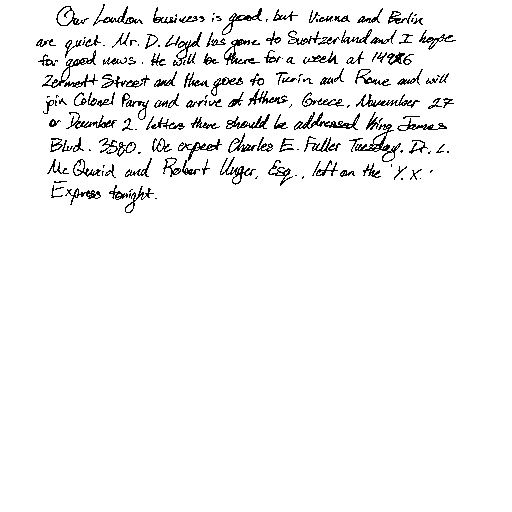 Our London business is good, but Vienna and Berlin
are quiet. Mr. D. Lloyd has gone to Switzerland and I hope
for good news. He will be there for a week at 1496
Zermott Street and then goes to Turin and Rome and will
join Colonel Parry and arrive at Athens, Greece, November 27
or December 2. Letters there should be addressed King James
Blvd. 3580. We expect Charles E. Fuller Tuesday. Dr. L.
McQuaid and Robert Unger, Esq., left on the 'Y.X.'
Express tonight.